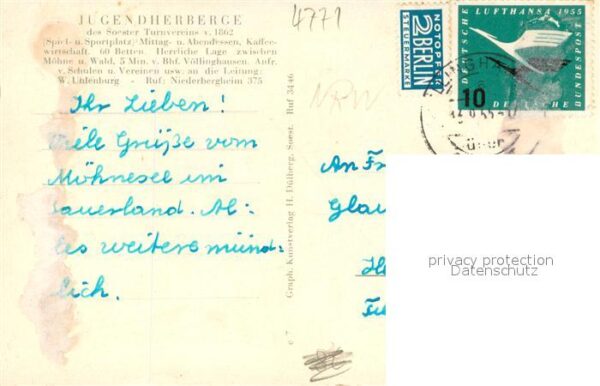 JUGENDHERBERGE
des Soester Turnvereins v. 1862
(Spiel- u. Sportplatz) Mittag- u. Abendessen, Kaffee-
wirtschaft. 60 Betten. Herrliche Lage zwischen
Möhne u. Wald. 5 Min. v. Bhf. Völlinghausen. Anfr.
v. Schulen u. Vereinen usw. an die Leitung:
W. Uhlenburg - Ruf: Niederbergheim 375
Ihr Lieben!
Viele Grüße vom
Möhnesee im
Sauerland. Al-
les weitere münd-
lich.
Graph. Kunstverlag H. Dülberg, Soest. Ruf 3446
4771
NRW
NOTOPFER
2 BERLIN
STEUERMARKE
DEUTSCHE LUFTHANSA 1955
10
DEUTSCHE BUNDESPOST
An Fr
Gla
privacy protection
Datenschutz